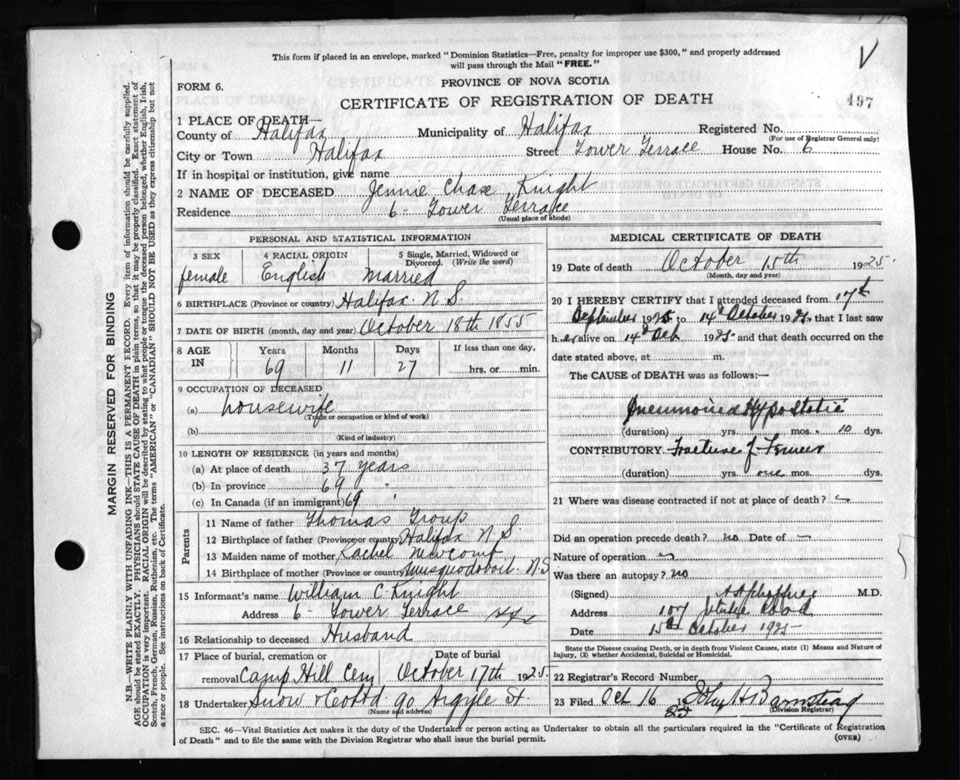 This form if placed in an envelope, marked "Dominion Statistics—Free, penalty for improper use $300," and properly addressed
will pass through the Mail "FREE."
V
FORM 6.
PROVINCE OF NOVA SCOTIA
CERTIFICATE OF REGISTRATION OF DEATH
497
1 PLACE OF DEATH—
County of Halifax Municipality of Halifax Registered No.
(For use of Registrar General only)
City or Town Halifax Street Tower Terrace House No. 6
If in hospital or institution, give name
2 NAME OF DECEASED Jennie Chase Knight
Residence 6 Tower Terrace
(Usual place of abode)
PERSONAL AND STATISTICAL INFORMATION
3 SEX 4 RACIAL ORIGIN 5 Single, Married, Widowed or Divorced. (Write the word)
female English Married
6 BIRTHPLACE (Province or country) Halifax N.S.
7 DATE OF BIRTH (month, day and year) October 18th 1855
8 AGE IN Years Months Days If less than one day,
69 11 27 hrs. or min.
9 OCCUPATION OF DECEASED
(a) housewife
(Trade or occupation or kind of work)
(b)
(Kind of industry)
10 LENGTH OF RESIDENCE (in years and months)
(a) At place of death 37 years
(b) In province 69 "
(c) In Canada (if an immigrant) 69 "
Parents
11 Name of father Thomas Group
12 Birthplace of father (Province or country) Halifax N.S.
13 Maiden name of mother Rachel Newcomb
14 Birthplace of mother (Province or country) Musquodoboit N S
15 Informant's name William C. Knight
Address 6 Tower Terrace
16 Relationship to deceased Husband
17 Place of burial, cremation or Date of burial
removal Camp Hill Cem October 17th 1925
18 Undertaker Snow & Co Ltd 90 Argyle St
(Name and address)
MEDICAL CERTIFICATE OF DEATH
19 Date of death October 15th 1925
(Month, day and year)
20 I HEREBY CERTIFY that I attended deceased from 17th
September 1925 to 14th October 1925 that I last saw
her alive on 14th Oct 1925 and that death occurred on the
date stated above, at m.
The CAUSE of DEATH was as follows:—
Pneumonia Hypostatic
(duration) yrs. mos. 10 dys.
CONTRIBUTORY Fracture of Femur
(duration) yrs. one mos. dys.
21 Where was disease contracted if not at place of death?
Did an operation precede death? No Date of
Nature of operation
Was there an autopsy? No
(Signed) M.D.
Address 107
Date 15th October 1925
State the Disease causing Death, or in death from Violent Causes, state (1) Means and Nature of
Injury, (2) whether Accidental, Suicidal or Homicidal.
22 Registrar's Record Number
23 Filed Oct 16 John H Barnstead
(Division Registrar)
SEC. 46—Vital Statistics Act makes it the duty of the Undertaker or person acting as Undertaker to obtain all the particulars required in the "Certificate of Registration
of Death" and to file the same with the Division Registrar who shall issue the burial permit.
(OVER)
MARGIN RESERVED FOR BINDING
N.B.—WRITE PLAINLY WITH UNFADING INK—THIS IS A PERMANENT RECORD. Every item of information should be carefully supplied.
AGE should be stated EXACTLY. PHYSICIANS should STATE CAUSE OF DEATH in plain terms, so that it may be properly classified. Exact statement of
OCCUPATION is very important. RACIAL ORIGIN will be described by stating to what people or tongue the deceased person belonged, whether English, Irish,
Scotch, French, German, Russian, Ruthenian, etc. The terms "AMERICAN" or "CANADIAN" SHOULD NOT BE USED as they express citizenship but not
a race or people. See instructions on back of Certificate.